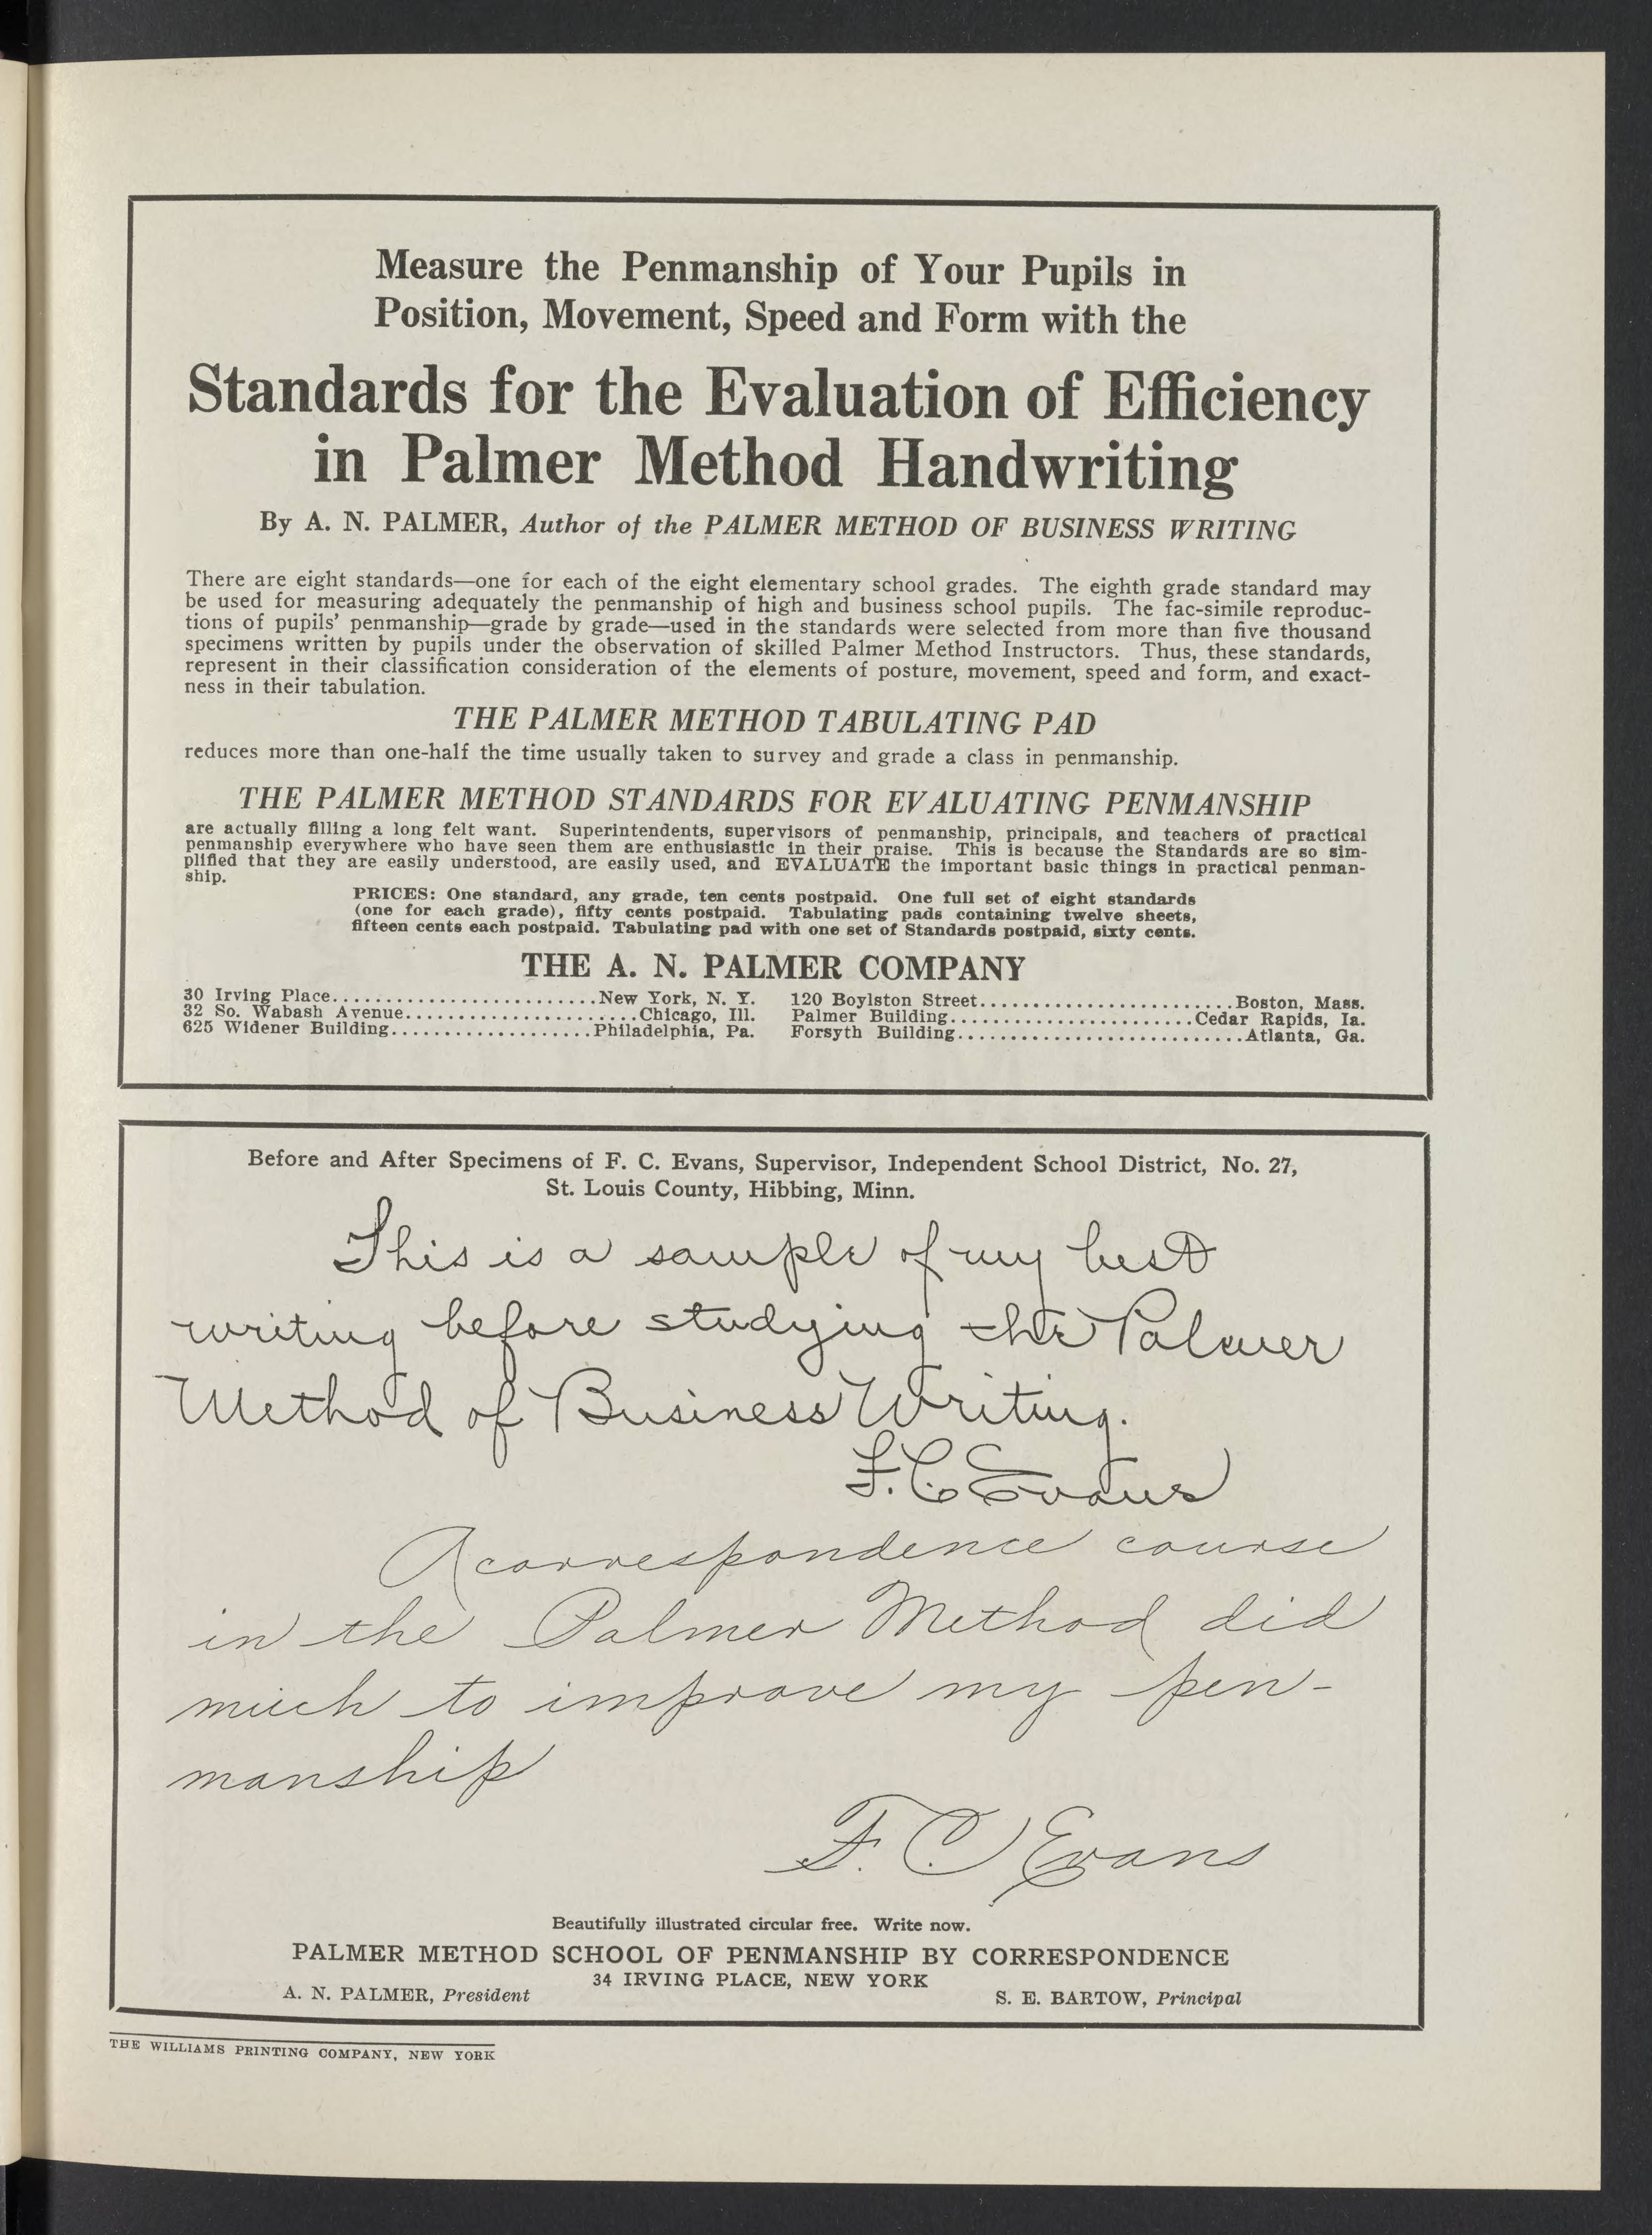 Measure the Penmanship of Your Pupils in
Position, Movement, Speed and Form with the
Standards for the Evaluation of Efficiency
in Palmer Method Handwriting
By A. N. PALMER, Author of the PALMER METHOD OF BUSINESS WRITING
There are eight standards—one for each of the eight elementary school grades. The eighth grade standard may
be used for measuring adequately the penmanship of high and business school pupils. The fac-simile reproduc-
tions of pupils' penmanship—grade by grade—used in the standards were selected from more than five thousand
specimens written by pupils under the observation of skilled Palmer Method Instructors. Thus, these standards,
represent in their classification consideration of the elements of posture, movement, speed and form, and exact-
ness in their tabulation.
THE PALMER METHOD TABULATING PAD
reduces more than one-half the time usually taken to survey and grade a class in penmanship.
THE PALMER METHOD STANDARDS FOR EVALUATING PENMANSHIP
are actually filling a long felt want. Superintendents, supervisors of penmanship, principals, and teachers of practical
penmanship everywhere who have seen them are enthusiastic in their praise. This is because the Standards are so sim-
plified that they are easily understood, are easily used, and EVALUATE the important basic things in practical penman-
ship.
PRICES: One standard, any grade, ten cents postpaid. One full set of eight standards
(one for each grade), fifty cents postpaid. Tabulating pads containing twelve sheets,
fifteen cents each postpaid. Tabulating pad with one set of Standards postpaid, sixty cents.
THE A. N. PALMER COMPANY
30 Irving Place.........................New York, N. Y.
32 So. Wabash Avenue......................Chicago, Ill.
625 Widener Building...................Philadelphia, Pa.
120 Boylston Street........................Boston, Mass.
Palmer Building.......................Cedar Rapids, Ia.
Forsyth Building...........................Atlanta, Ga.
Before and After Specimens of F. C. Evans, Supervisor, Independent School District, No. 27,
St. Louis County, Hibbing, Minn.
This is a sample of my best
writing before studying the Palmer
Method of Business Writing.
F. C. Evans
A correspondence course
in the Palmer Method did
much to improve my pen-
manship
F. C. Evans
Beautifully illustrated circular free. Write now.
PALMER METHOD SCHOOL OF PENMANSHIP BY CORRESPONDENCE
34 IRVING PLACE, NEW YORK
A. N. PALMER, President
S. E. BARTOW, Principal
THE WILLIAMS PRINTING COMPANY, NEW YORK